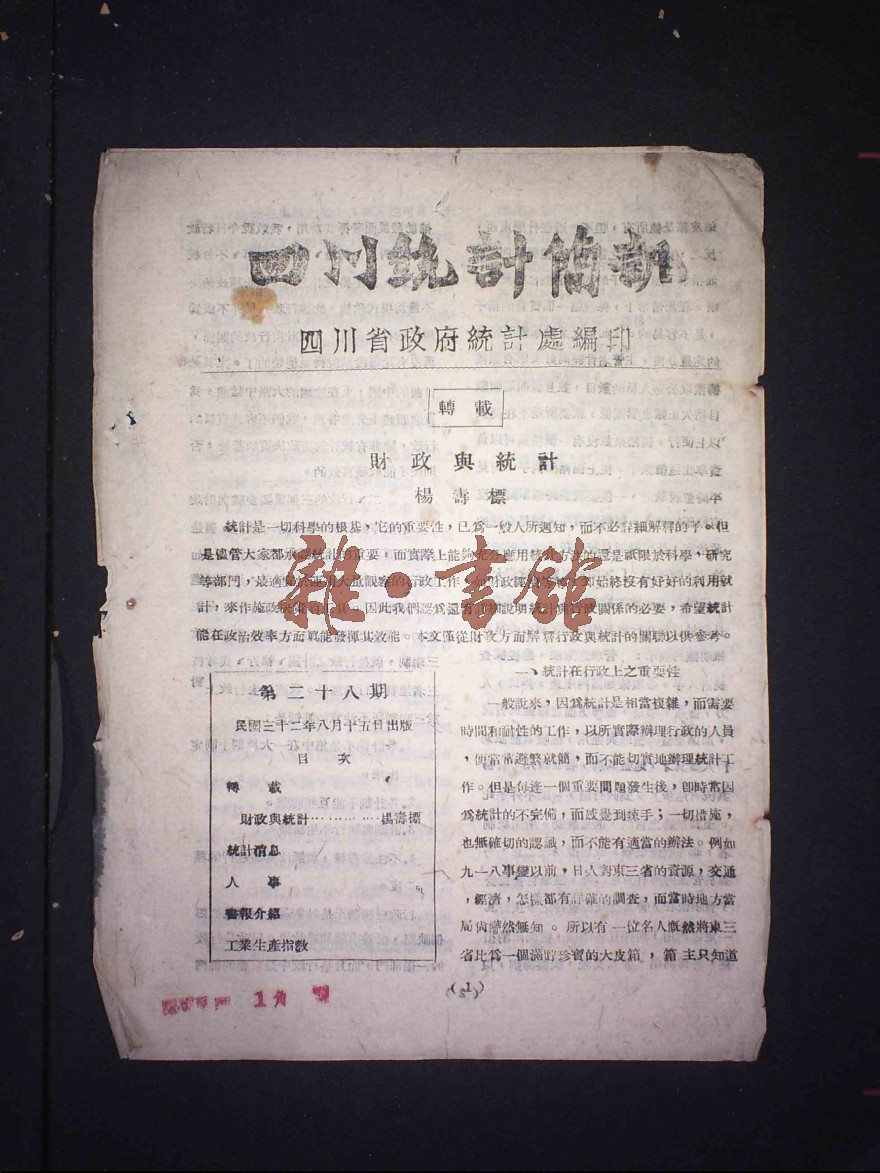 四川統計簡訊
四川省政府統計處編印
轉載
財政與統計
楊壽標
統計是一切科學的根基，它的重要性，已爲一般人所週知，而不必詳細解釋的了。但
是儘管大家都承認統計的重要，而實際上能夠充分應用統計方法的還是祇限於科學，研究
等部門，最適宜於運用大量觀察的行政工作，如財政經濟等，却始終沒有好好的利用統
計，來作施政決策的工具。因此我們認爲還有說明統計與行政關係的必要，希望統計
能在政治效率方面眞能發揮其效能。本文僅從財政方面解釋行政與統計的關聯以供參考。
一、統計在行政上之重要性
一般說來，因爲統計是相當複雜，而需要
時間和耐性的工作，以所實際辦理行政的人員
，便常常避繁就簡，而不能切實地辦理統計工
作。但是每逢一個重要問題發生後，卽時常因
爲統計的不完備，而感覺到棘手；一切措施，
也無確切的認識，而不能有適當的辦法。例如
九一八事變以前，日人對東三省的資源，交通
，經濟，怎樣都有詳確的調查，而當時地方當
局尙懵然無知。所以有一位名人慨然將東三
省比爲一個滿貯珍寶的大皮箱，箱主只知道
第二十八期
民國三十二年八月十五日出版
目次
轉載
財政與統計…………楊壽標
統計消息
人事
書報介紹
工業生產指數
(1)
雜·書館
1角